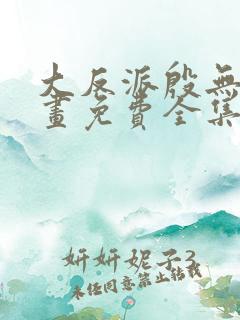 大反派殷無
畫免費全集
妍妍妮子3
未經同意禁止轉載